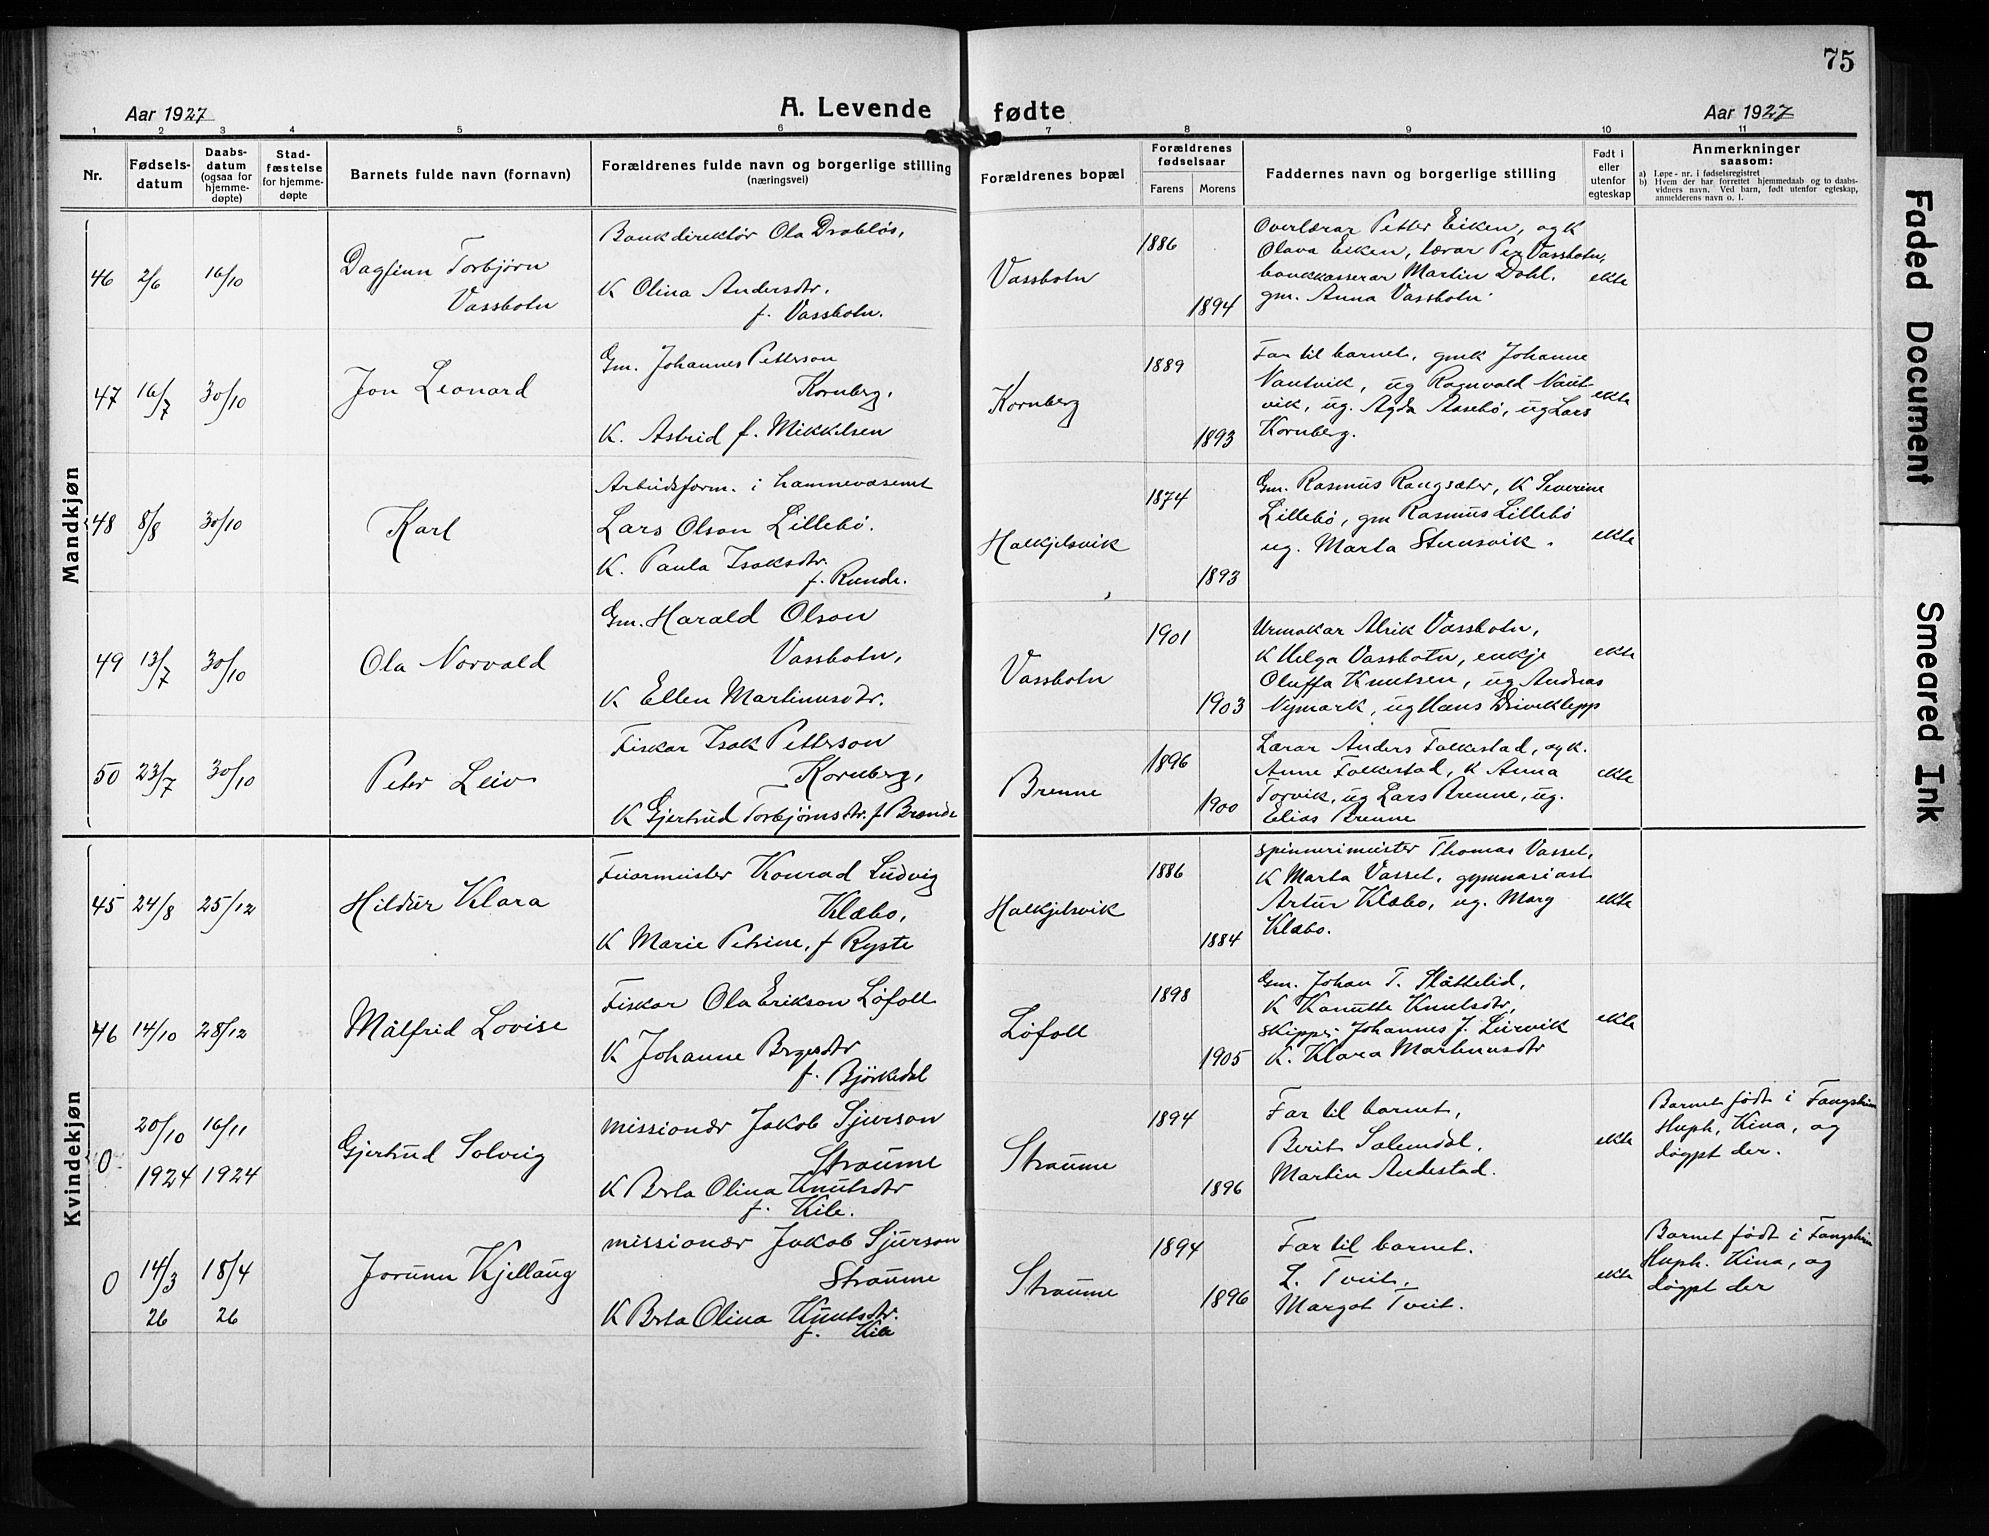 75
Aar 1927
A. Levende fødte
Aar 1927
1 2 3 4 5 6 7 8 9 10 11
Nr.
Fødsels-
datum
Daabs-
datum
(ogsaa for
hjemme-
døpte)
Stad-
fæstelse
for hjemme-
døpte
Barnets fulde navn (fornavn)
Forældrenes fulde navn og borgerlige stilling
(næringsvei)
Forældrenes bopæl
Forældrenes
fødselsaar
Farens Morens
Faddernes navn og borgerlige stilling
Født i
eller
utenfor
egteskap
Anmerkninger
saasom:
a) Løpe-nr. i fødselsregistret
b) Hvem der har forrettet hjemmedaab og to daabs-
vidners navn. Ved barn, født utenfor egteskap,
anmelderens navn o. l.
Mandkjøn
46 2/6 16/10
Dagfinn Torbjørn
Vassbotn
Bankdirektør Ola Drabløs,
K Olina Andersdtr.
f. Vassbotn.
Vassbotn
1886
1894
Overlærar Petter Eiken, og k
Olava Eiken, lærar Per Vassbotn,
bankkasserar Martin Dahl.
gm. Anna Vassbotn
ekte
47 16/7 30/10
Jon Leonard
Gm. Johannes Petterson
Kornberg,
K. Astrid f. Mikkelsen
Kornberg
1889
1893
Far til barnet, gmk Johanne
Nautvik, ug Ragnvald Naut-
vik, ug. Agda Aasebø, ug Lars
Kornberg.
ekte
48 8/8 30/10
Karl
Arbeidsform. i hamnevæsenet
Lars Olson Lillebø.
K. Paula Isaksdtr.
f. Runde.
Halkjelsvik
1874
1893
Gm. Rasmus Rangsæter, K Severine
Lillebø, gm Rasmus Lillebø
ug. Marta Steinsvik.
ekte
49 13/7 30/10
Ola Norvald
Gm. Harald Olson
Vassbotn,
K Ellen Martinusdtr.
Vassbotn
1901
1903
Urmakar Alrik Vassbotn,
K Helga Vassbotn, enkje
Oluffa Knutsen, ug Andreas
Nymark, ug Hans Driveklepp
ekte
50 23/7 30/10
Peter Leiv
Fiskar Isak Petterson
Kornberg,
K Gjertrud Torbjørnsdtr. f Brande
Brenne
1896
1900
Lærar Anders Folkestad, og k.
Anne Folkestad, K Anna
Torvik, ug Lars Brenne, ug.
Elias Brenne
ekte
Kvindekjøn
45 24/8 25/12
Hildur Klara
Feiarmeister Konrad Ludvig
Klæbo,
K Marie Petrine, f Ryste
Halkjelsvik
1886
1884
Spinnerimeister Thomas Vasset,
K Marta Vasset, gymnasiast
Artur Klæbo, ug. Marg
Klæbo.
ekte
46 14/10 28/12
Målfrid Lovise
Fiskar Ola Erikson Løfoll
K Johanne
f. Bjørkedal
Løfoll
1898
1905
Gm. Johan T. Slåttelid,
K Kanutte Knutsdtr,
Skipper Johannes J. Leirvik
K. Klara Martinusdtr
ekte
0 20/10 16/11
1924 1924
Gjertrud Solveig
missionær Jakob Sjurson
Straume
K Berta Olina Knutsdtr
f. Kile.
Straume
1894
1896
Far til barnet,
Berit Salemdal,
Martin Andestad.
ekte
Barnet født i
Huph, Kina, og
døypt der.
0 14/3 18/4
26 26
Jorunn Kjellaug
missionær Jakob Sjurson
Straume
K Berta Olina Knutsdtr.
f. Kile
Straume
1894
1896
Far til barnet.
L. Tveit,
Margot Tveit.
ekte
Barnet født i
Huph. Kina, og
døypt der
Faded Document
Smeared Ink